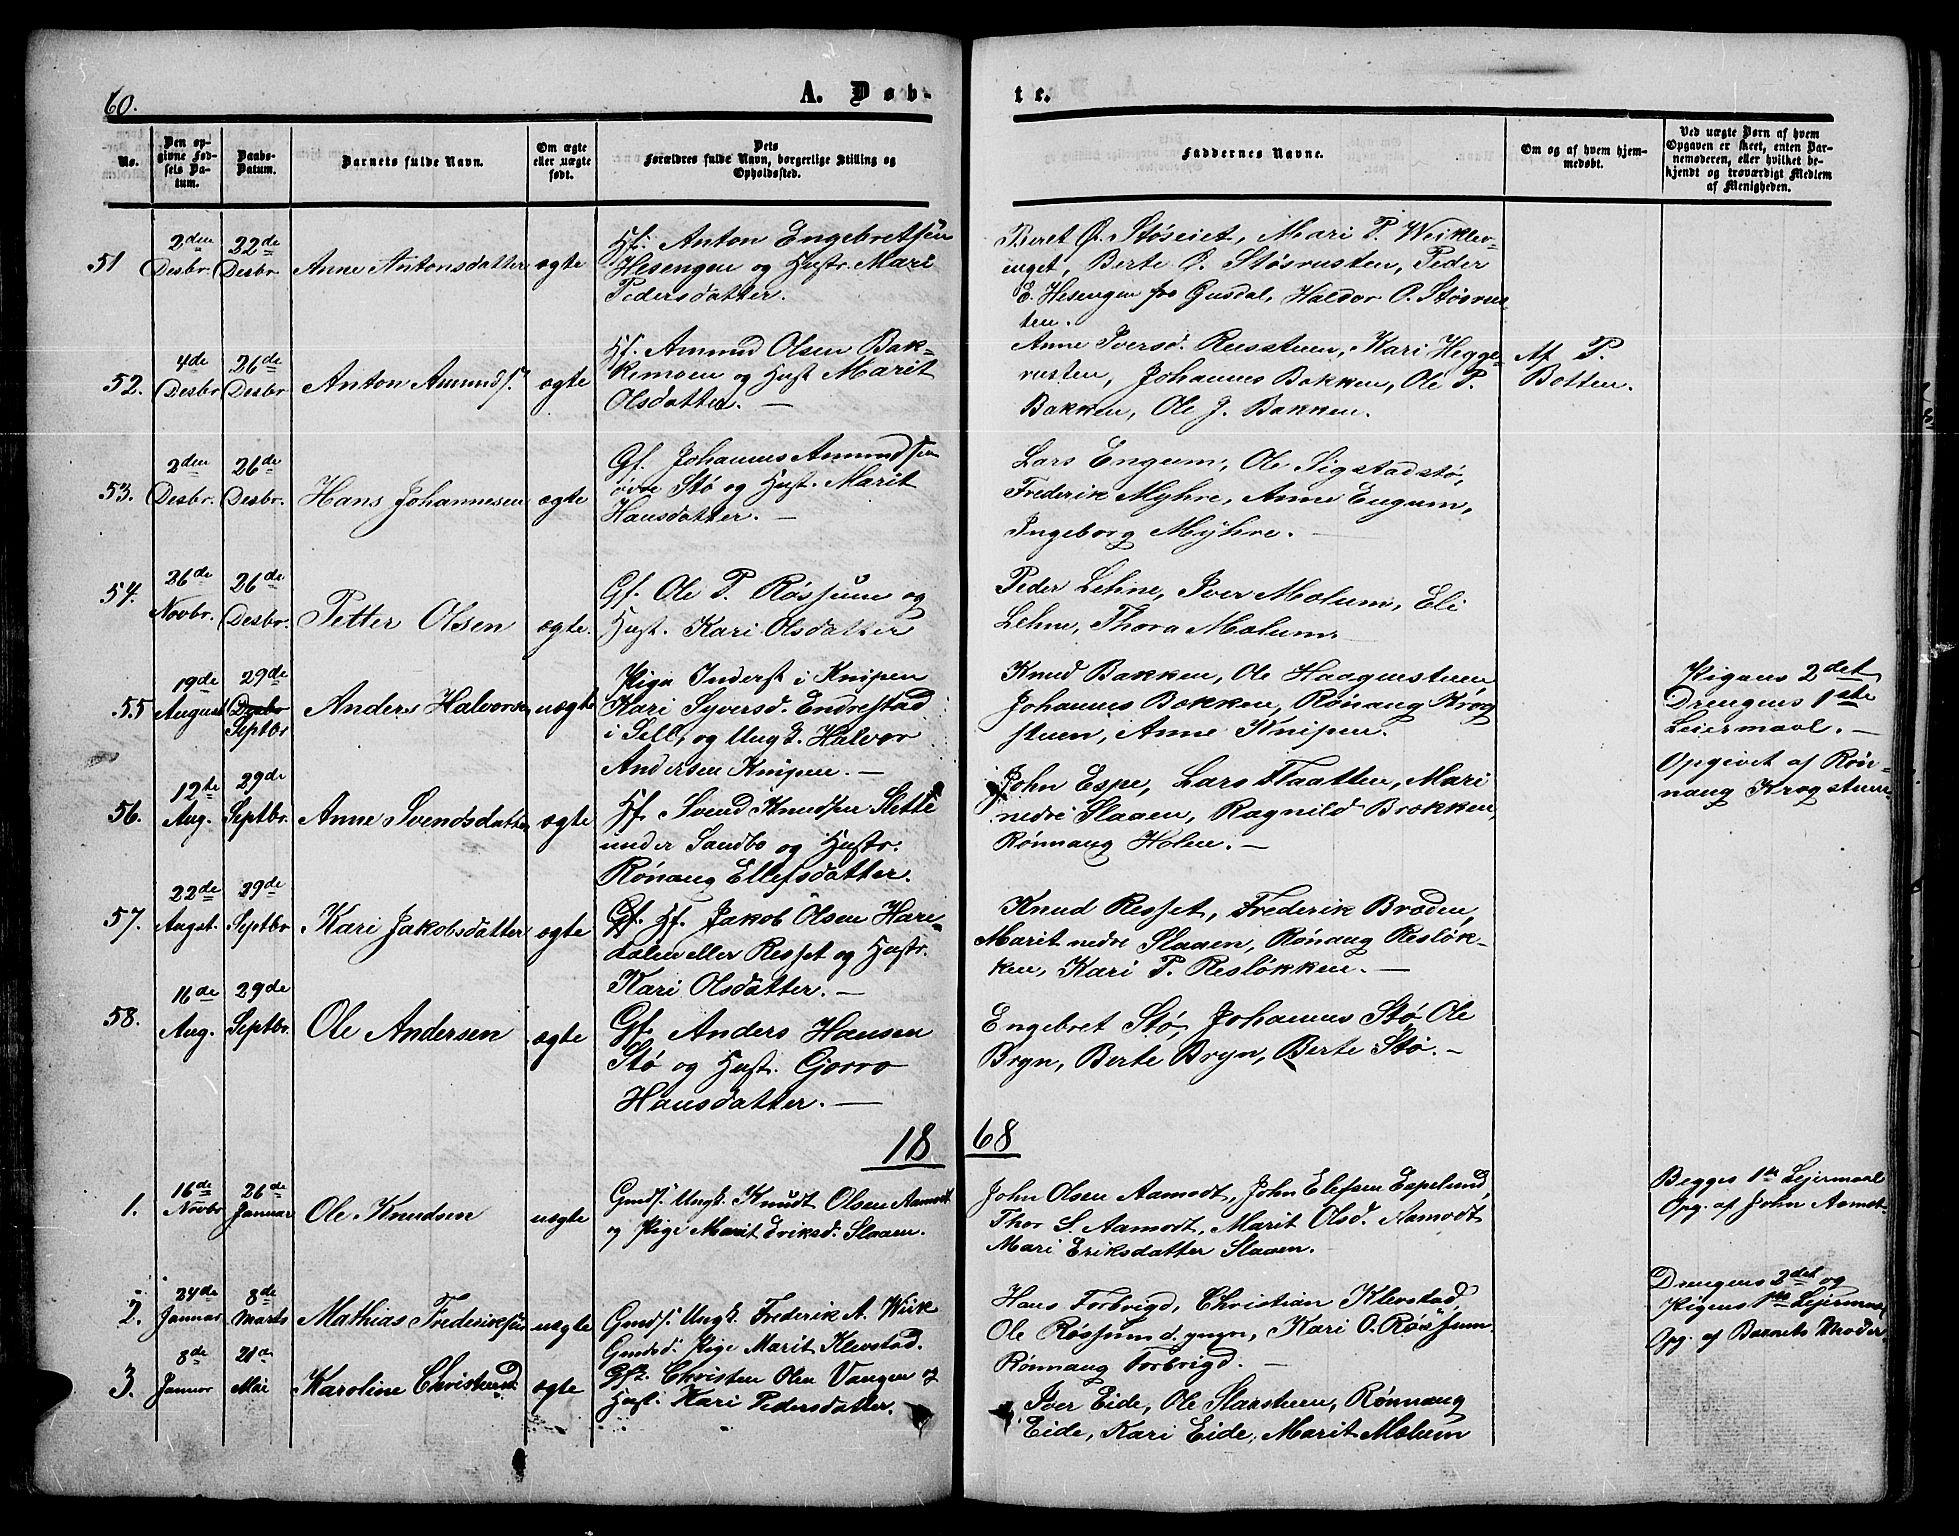 60.
A. Døb-
te.
No.
Den op-
givne Fød-
sels Da-
tum.
Daabs-
Datum.
Barnets fulde Navn.
Om ægte
eller uægte
født.
Dets
Forældres fulde Navn, borgerlige Stilling og
Opholdssted.
Faddernes Navne.
Om og af hvem hjem-
medøbt.
Ved uægte Børn af hvem
Opgaven er skeet, enten Bar-
nemoderen, eller hvilket be-
kjendt og troværdigt Medlem
af Menigheden.
51
2den
Desbr.
22de
Desbr.
Anne Antonsdatter
ægte
Hf. Anton Engebretsen
Hesengen og Hustr. Mari
Pedersdatter.
Beret Ø. Støseiet, Mari P. Weikler-
enget, Berte Ø. Støsrusten, Peder
E. Hesengen fra Gusdal, Haldor O. Støsrus-
ten.
52.
4de
Desbr
26de
Desbr
Anton Amunds.
ægte
Hf. Amund Olsen Bak-
kemoen og Hust Marit
Olsdatter. —
Anne Iversd. Russtuen, Kari Hegge-
rusten, Johannes Bakken, Ole P.
Bakken, Ole J. Bakken.
Af P.
Botten.
53.
2den
Desbr.
26de
Desbr.
Hans Johannesen
ægte
Gf. Johannes Amundsen
øvre Stø og Hust. Marit
Hansdatter. —
Lars Engum, Ole Sigstadstø,
Frederik Myhre, Anne Engum,
Ingeborg Myhre. —
54.
26de
Novbr.
26de
Desbr.
Petter Olsen
ægte.
Gf. Ole P. Røssum og
Hust. Kari Olsdatter
Peder Lehne, Iver Molum, Eli
Lehne, Thora Molum.
55
19de
August
29de
Desbr
Septbr
Anders Halvorsen
uægte
Pige Inderst i Knipen
Kari Syversd. Endrestad
i Sell, og Ungk. Halvor
Andersen Knipen. —
Knud Bakken, Ole Haagenstuen
Johannes Bakken, Rønaug Krog
stuen, Anne Knipen.
Pigens 2det
Drengens 1ste
Leiermaal. —
Opgivet af Røn-
naug Krogstuen
56.
12te
Aug.
29de
Septbr.
Anne Svendsdatter
ægte
Hf. Svend Knudsen Slette
under Sandbo og Hustr.
Rønaug Ellefsdatter.
John Espe, Lars Flaatten, Mari
nedre Slaaen, Ragnild Brækken,
Rønnaug Holen. —
57.
22de
Augst.
29de
Septbr
Kari Jakobsdatter
ægte
Gf. Hf. Jakob Olsen Hare-
dalen eller Resset og Hustr.
Kari Olsdatter. —
Knud Resset, Frederik Bræden,
Marit nedre Slaaen, Rønaug Resløk-
ken, Kari P. Resløkken. —
58.
16de
Aug.
29de
Septbr.
Ole Andersen
ægte
Gf. Anders Hansen
Stø og Hust. Gorro
Hansdatter. —
Engebret Stø, Johannes Stø, Ole
Bryn, Berte Bryn, Berte Stø. —
18 68
1.
16de
Novbr
26de
Januar
Ole Knudsen
uægte
Gmds. Ungk. Knudt Olsen Aamodt
og Pige Marit Eriksd. Slaaen.
John Olsen Aamodt, John Elefsen Espelund,
Thor S. Aamodt, Marit Olsd. Aamodt
Mari Eriksdatter Slaaen.
Begges 1ste Lejermaal
Opg. af John Aamot
2.
24de
Januar
8de
Marts
Mathias Frederiksen
uægte
Gmds. Ungk. Frederik A. Wiik
Gmdsd. Pige Marit Klevstad.
Hans Forbrigd, Christian Klevstad,
Ole Røssum d. yngre, Kari O. Røssum.
Rønnaug Forbrigd. —
Drengens 2det og
Pigens 1ste Lejermaal
Opg. af Barnets Moder
3.
8de
Januar
21de
Mai
Karoline Christensd.
ægte
Christen Olsen Vangen og
Hust. Kari Pedersdatter.
Iver Eide, Ole Slarstuen, Rønnaug
Eide, Kari Eide, Marit Molum